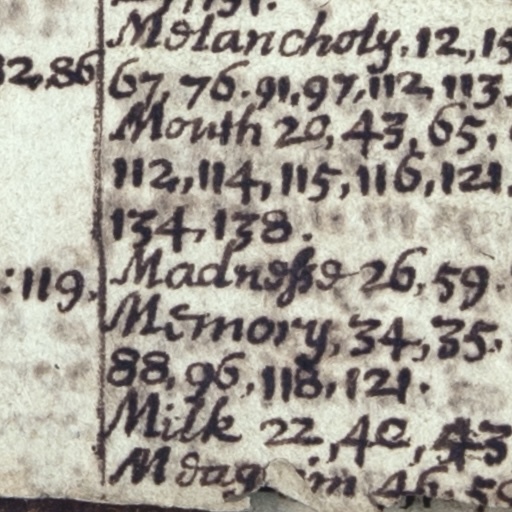 Melancholy, 12, 15
32, 86 67, 76. 91, 97, 112, 113.
Mouth 20, 43, 65,
112, 114, 115, 116, 121.
134, 138.
: 119. Madnesse 26, 59.
Memory, 34, 35.
88, 96, 118, 121.
Milk 22, 40, 43
46, 50